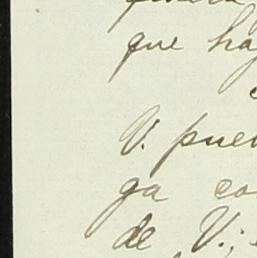 que ha
V. pue
ga co
de V.;